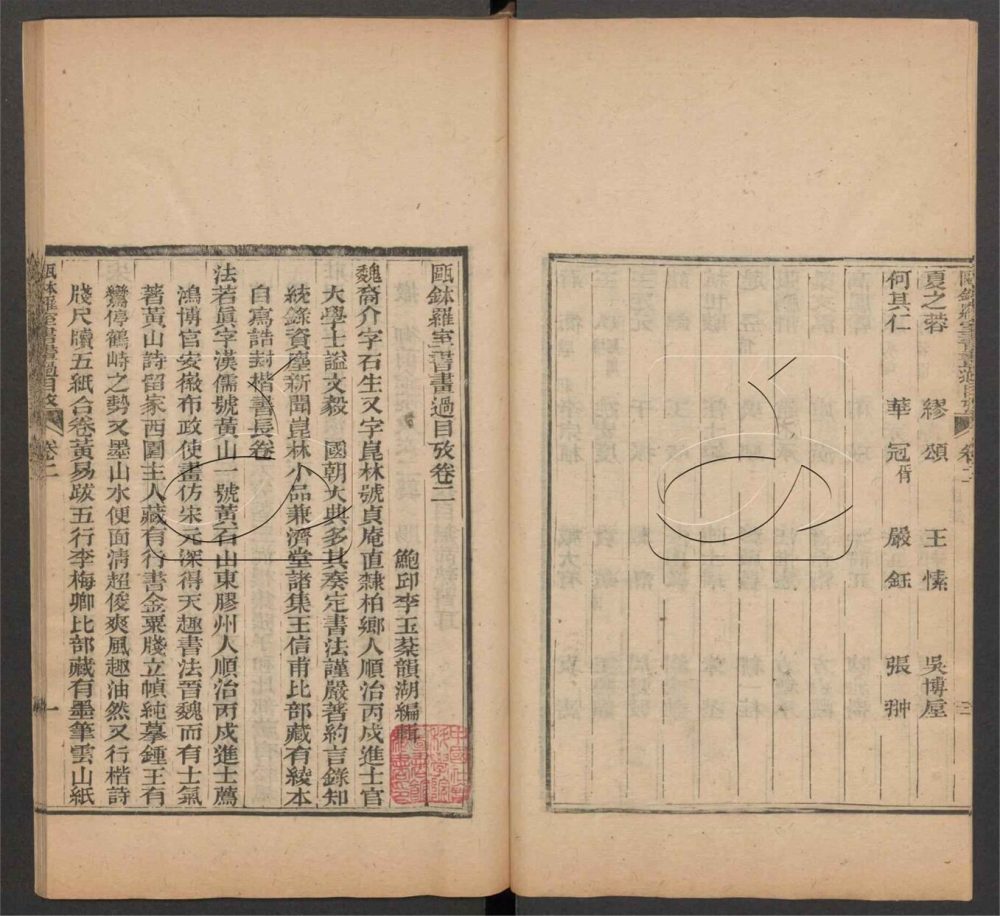 夏之蓉 繆頌 王愫 吳博垕
何其仁 華冠 脩 嚴鈺 張翀
卷二
三
甌鉢羅室書畫過目攷卷二
鮑邱李玉棻韻湖編輯
魏裔介字石生又字崑林號貞庵直隸柏鄉人順治丙戍進士官
大學士諡文毅 國朝大典多其奏定書法謹嚴著約言錄知
統錄資麈新聞崑林小品兼濟堂諸集王信甫比部藏有綾本
自寫誥封楷書長卷
法若眞字漢儒號黃山一號黃石山東膠州人順治丙戍進士薦
鴻博官安徽布政使畫仿宋元深得天趣書法晉魏而有士氣
著黃山詩留家西園主人藏有行書金粟牋立幀純摹鍾王有
鸞停鶴峙之勢又墨山水便面清超俊爽風趣油然又行楷詩
牋尺牘五紙合卷黃易跋五行李梅卿比部藏有墨筆雲山紙
甌鉢羅室書畫過目攷
卷二
一